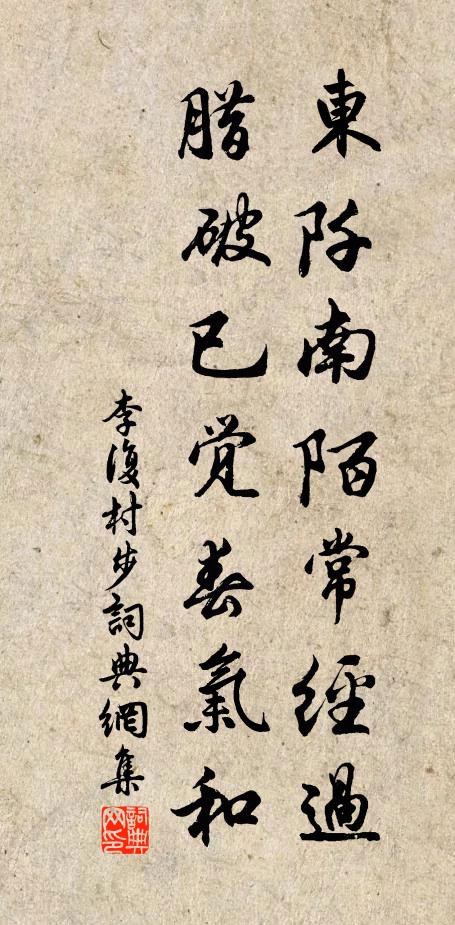 東阡南陌常經過
腊破已覚春氣和
李復村步詞典網集
詞典网印